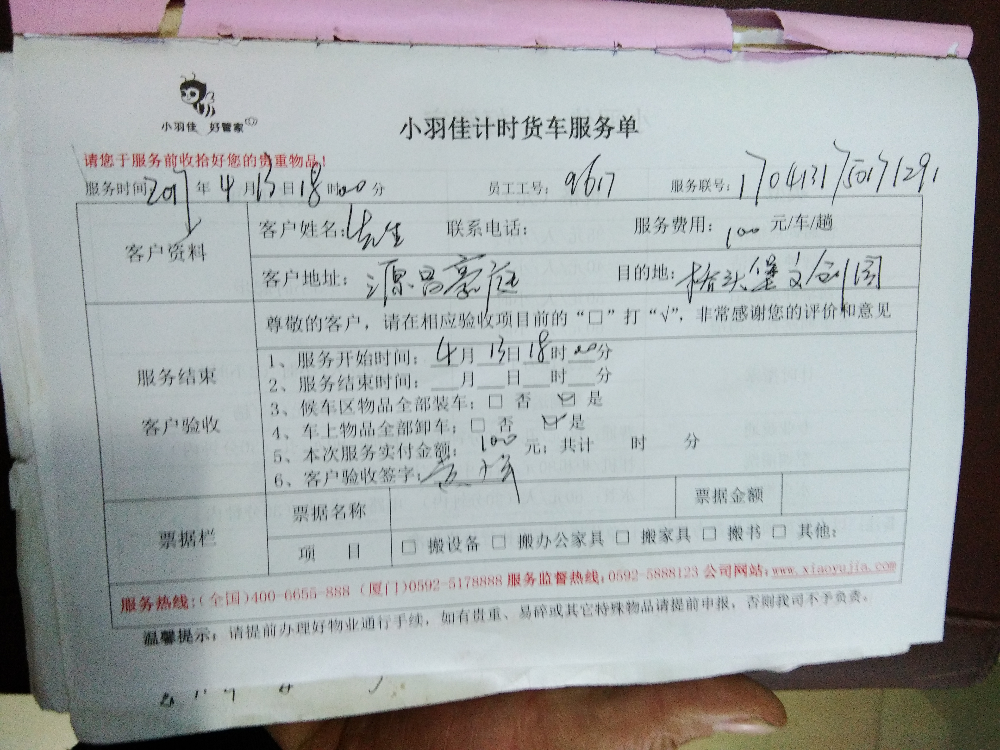 小羽佳 好管家
小羽佳计时货车服务单
请您于服务前收拾好您的贵重物品！
服务时间2017年4月13日18时00分 员工工号：9617 服务联号：
客户资料
客户姓名： 先生 联系电话： 服务费用：100元/车/趟
客户地址：源昌豪庭 目的地：桥头堡文创园
尊敬的客户，请在相应验收项目前的“□”打“√”，非常感谢您的评价和意见
服务结束
客户验收
1、服务开始时间：4月13日18时00分
2、服务结束时间：__月__日__时__分
3、候车区物品全部装车：□ 否 ☑ 是
4、车上物品全部卸车：□ 否 ☑ 是
5、本次服务实付金额：100元；共计 时 分
6、客户验收签字：
票据栏
票据名称 票据金额
项 目 □ 搬设备 □ 搬办公家具 □ 搬家具 □ 搬书 □ 其他：
服务热线：(全国)400-6655-888 (厦门)0592-5178888 服务监督热线：0592-5888123 公司网站：www.xiaoyujia.com
温馨提示：请提前办理好物业通行手续，如有贵重、易碎或其它特殊物品请提前申报，否则我司不予负责。